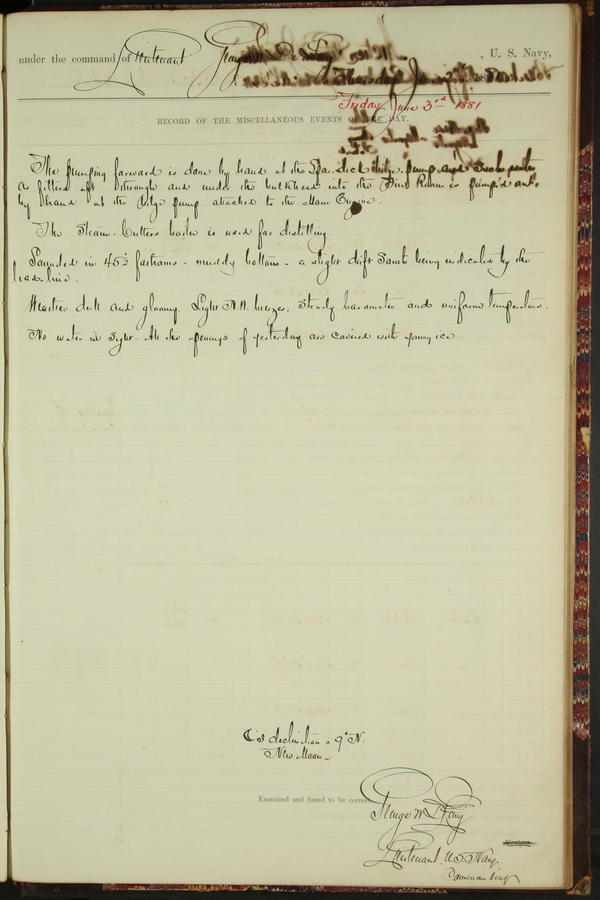 under the command of Lieutenant George W. De Long, U. S. Navy,
Friday, June 3rd 1881
RECORD OF THE MISCELLANEOUS EVENTS OF THE DAY.
The pumping forward is done by hand at the Spar deck bilge pump and such water
as filters aft through and under the bulkhead into the Fire Room is pumped out
by hand at the bilge pump attached to the Main Engine.
The Steam-Cutters boiler is used for distilling.
Sounded in 45½ fathoms - muddy bottom - a slight drift South being indicated by the
lead line.
Weather dull and gloomy. Light N.W. breezes, steady barometer and uniform temperature.
No water in sight. All the openings of yesterday are covered with young ice.
C's declination = 9° N.
New Moon -
Examined and found to be correct.
George W. De Long
Lieutenant U.S. Navy.
Commanding